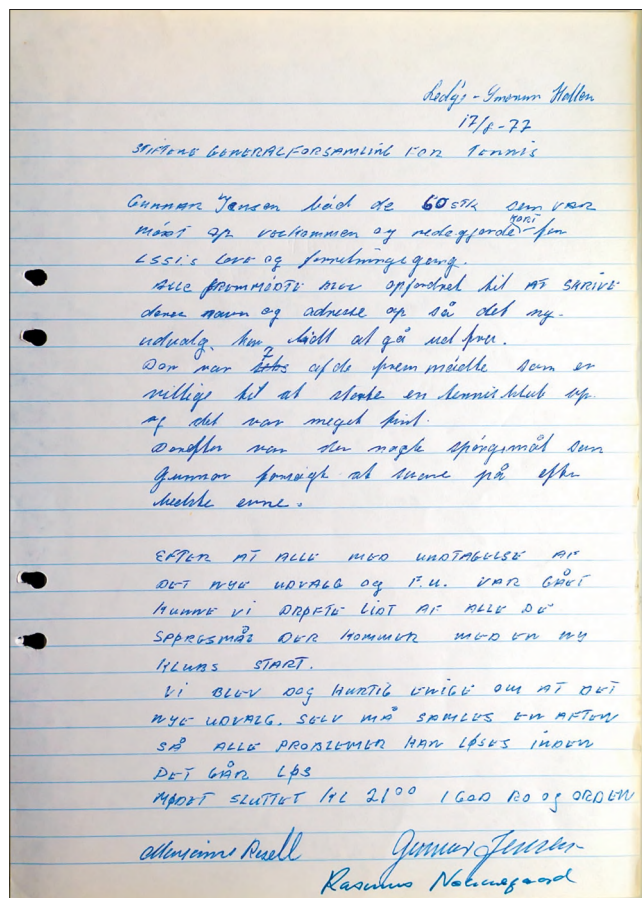 Ledøje-Smørum Hallen
17/8-77
STIFTENE GENERALFORSAMLING FOR TENNIS
GUNNAR Jensen bád de 60 STK som VAR
MØDT op velkommen og redegjorde KORT for
LSSI's love og forretningsgang.
ALLE FREMMØDTE blev opfordret til AT SKRIVE
deres navn og adresse op så det ny-
udvalg. har lidt at gå ud fra.
Der var 7 af de frem mødte som er
villige til at starte en tennisklub op.
og det var meget fint.
Derefter var der nogle spørgsmål som
Gunnar forsøgte at svare på efter
bedste evne.
EFTER AT ALLE MED UNDTAGELSE AF
DET NYE UDVALG og F.U. VAR GÅET
KUNNE VI DRØFTE LIDT AF ALLE DE
SPØRGSMÅL DER KOMMER MED EN NY
KLUBS START.
VI BLEV DOG HURTIG ENIGE OM AT DET
NYE UDVALG. SELV MÅ SAMLES EN AFTEN
SÅ ALLE PROBLEMER KAN LØSES INDEN
DET GÅR LØS
MØDET SLUTTET KL 21⁰⁰ I GOD RO og ORDEN
Marianne Gunnar Jensen
Rasmus